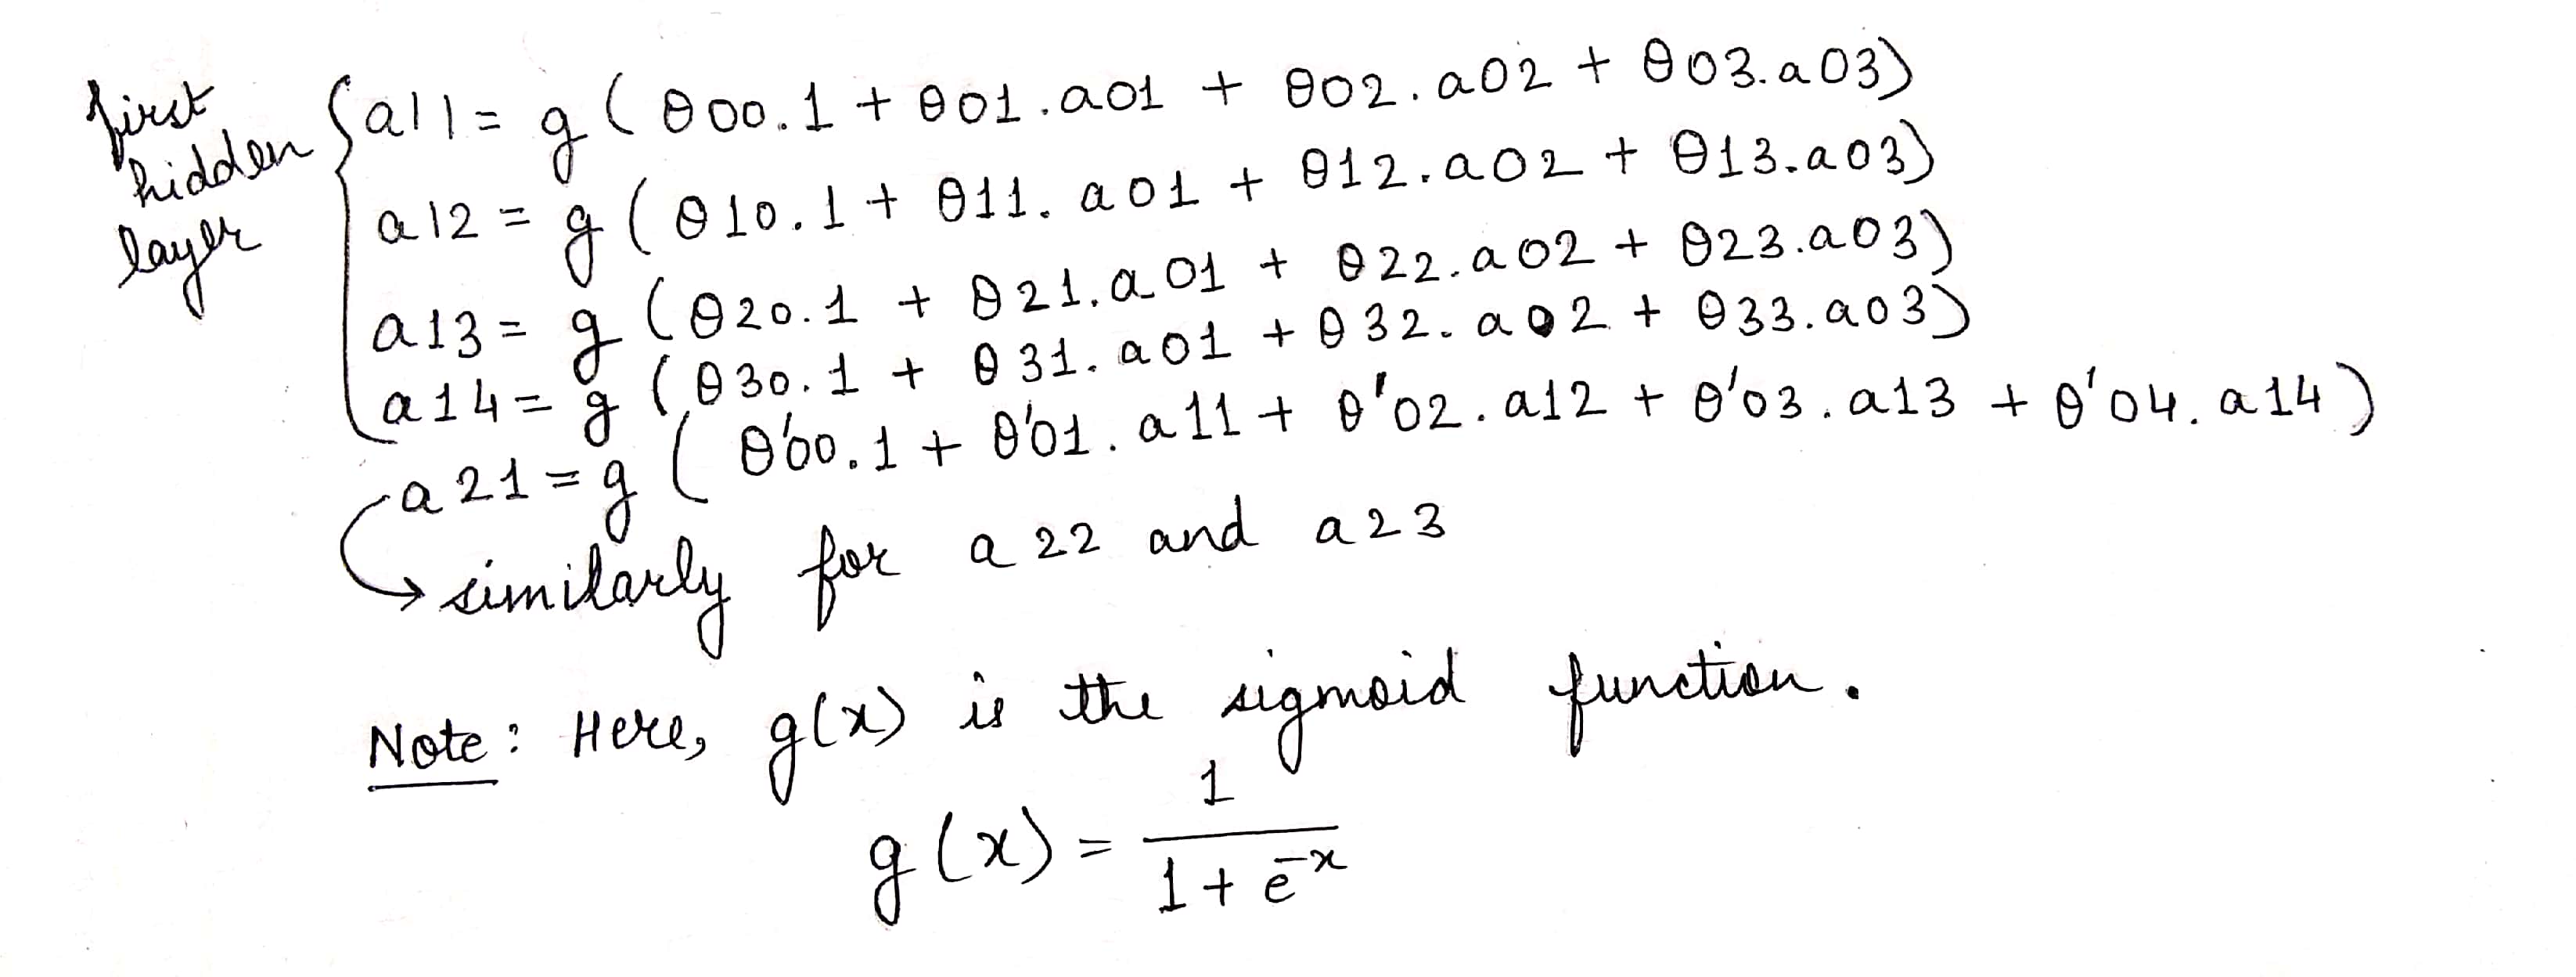 first hidden layer
a11 = g ( θ00.1 + θ01.a01 + θ02.a02 + θ03.a03)
a12 = g ( θ10.1 + θ11.a01 + θ12.a02 + θ13.a03)
a13 = g ( θ20.1 + θ21.a01 + θ22.a02 + θ23.a03)
a14 = g ( θ30.1 + θ31.a01 + θ32.a02 + θ33.a03)
a21 = g ( θ'00.1 + θ'01.a11 + θ'02.a12 + θ'03.a13 + θ'04.a14)
→ similarly for a22 and a23
Note: Here, g(x) is the sigmoid function.
g(x) = 1 / (1 + e^-x)